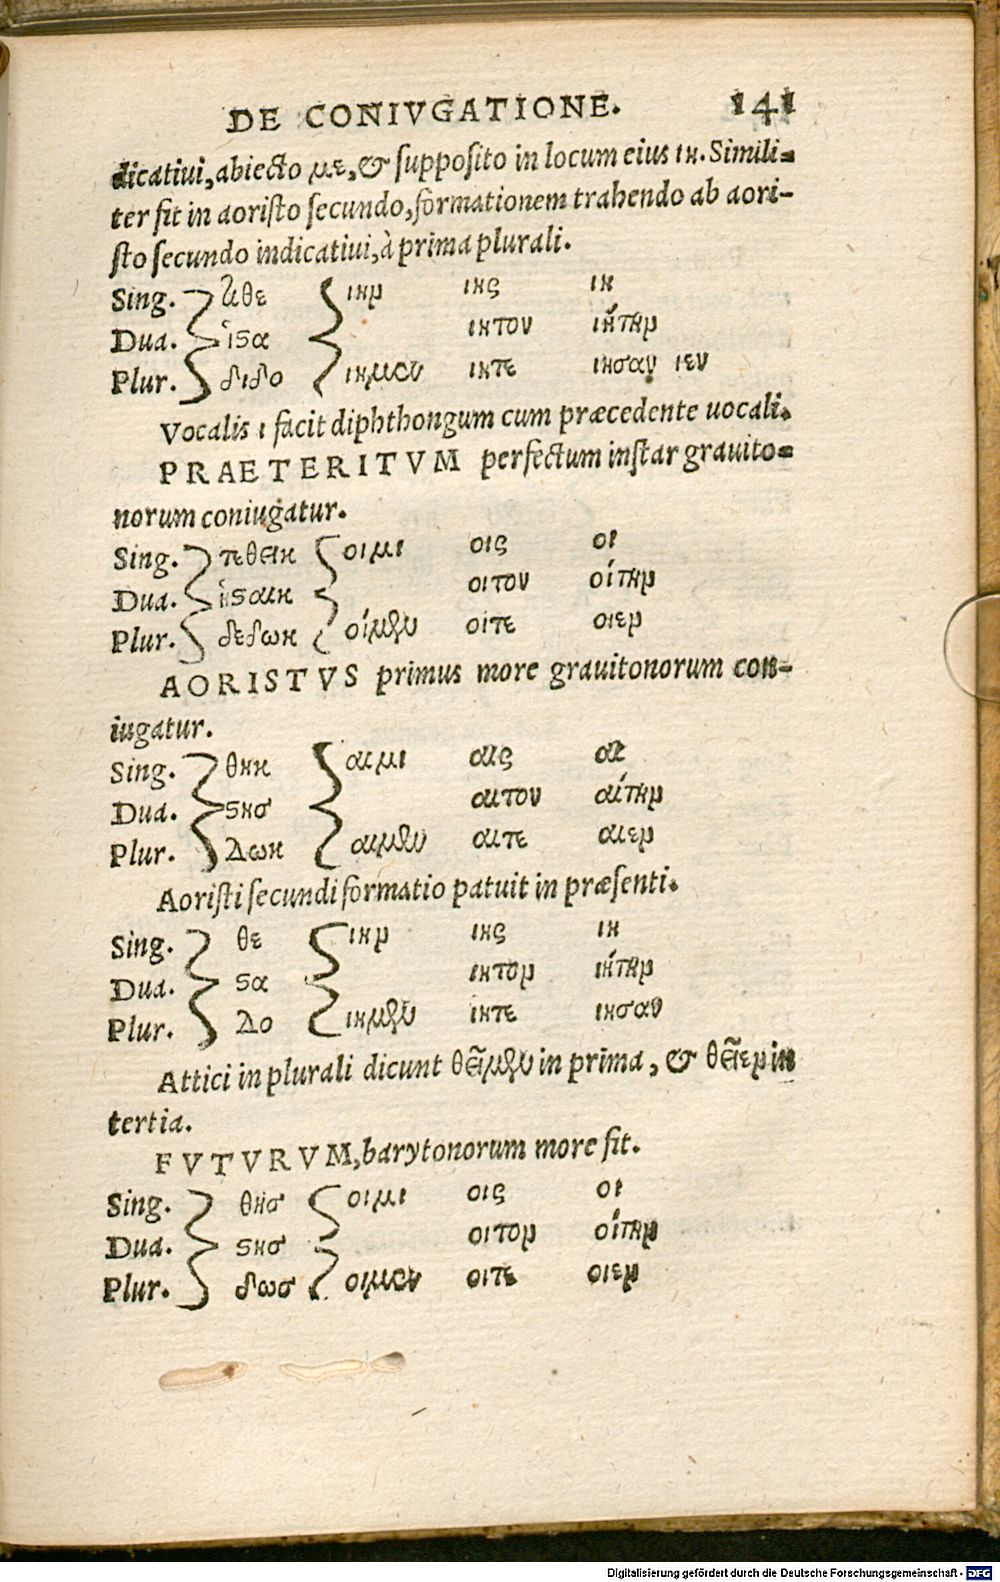 DE CONIVGATIONE. 141
dicatiui, abiecto με, & supposito in locum eius ιη. Simili-
ter fit in aoristo secundo, formationem trahendo ab aori-
sto secundo indicatiui, à prima plurali.
Sing. θε ιην ιης ιη
Dua. ἱϛα ιητον ιήτην
Plur. διδο ιημεν ιητε ιησαν ιεν
Vocalis ι facit diphthongum cum præcedente uocali.
PRAETERITVM perfectum instar grauito-
norum coniugatur.
Sing. τεθεικ οιμι οις οι
Dua. ἑϛακ οιτον οίτην
Plur. δεδωκ οίμεν οιτε οιεν
AORISTVS primus more grauitonorum con-
iugatur.
Sing. θηκ αιμι αις αι
Dua. ϛησ αιτον αίτην
Plur. δωκ αιμεν αιτε αιεν
Aoristi secundi formatio patuit in præsenti.
Sing. θε ιην ιης ιη
Dua. ϛα ιητον ιήτην
Plur. δο ιημεν ιητε ιησαν
Attici in plurali dicunt θεῖμεν in prima, & θεῖεν in
tertia.
FVTVRVM, barytonorum more fit.
Sing. θησ οιμι οις οι
Dua. ϛησ οιτον οίτην
Plur. δωσ οιμεν οιτε οιεν
Digitalisierung gefördert durch die Deutsche Forschungsgemeinschaft - DFG